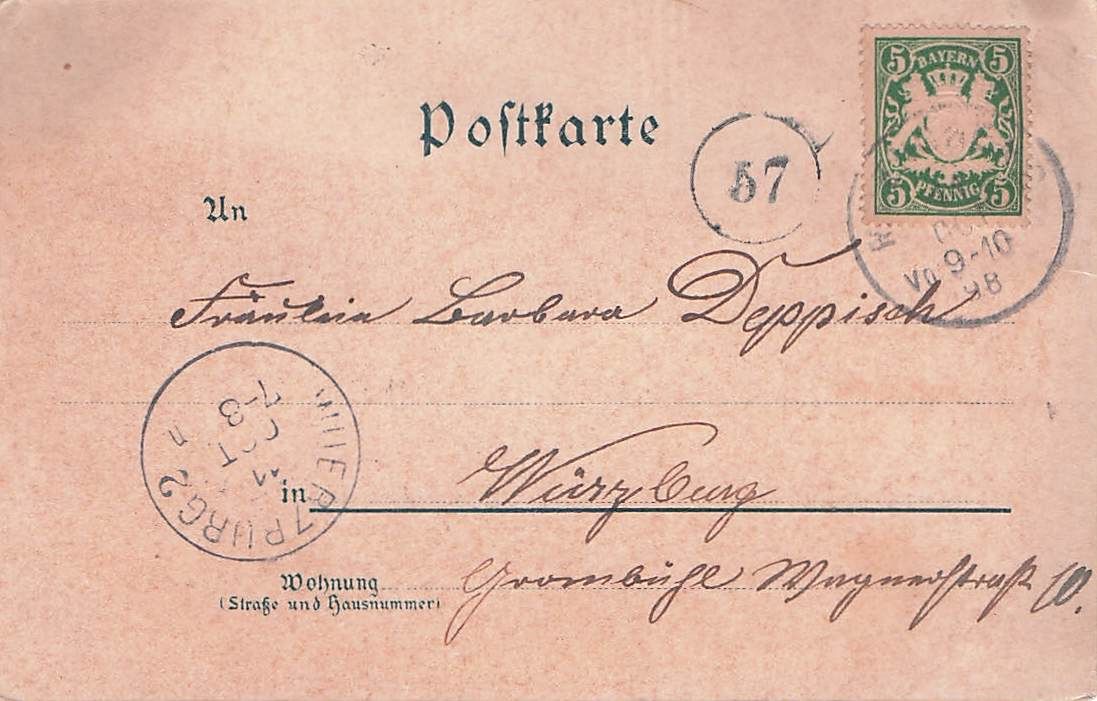 Postkarte
5 BAYERN 5
5 PFENNIG 5
57
Vm 9-10
98
An
Fräulein Barbara Deppisch
WUERZBURG 2
OCT
7-8
in Würzburg
Wohnung
(Straße und Hausnummer)
Grombühl Wagnerstraße 10.